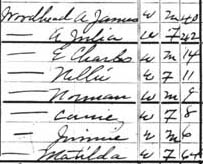 Woodhead A James W M 40
— A Julia W F 42
— E Charles W M 14
— Nellie W F 11
— Norman W M 9
— Carrie W F 8
— M 6
— Matilda W F 64